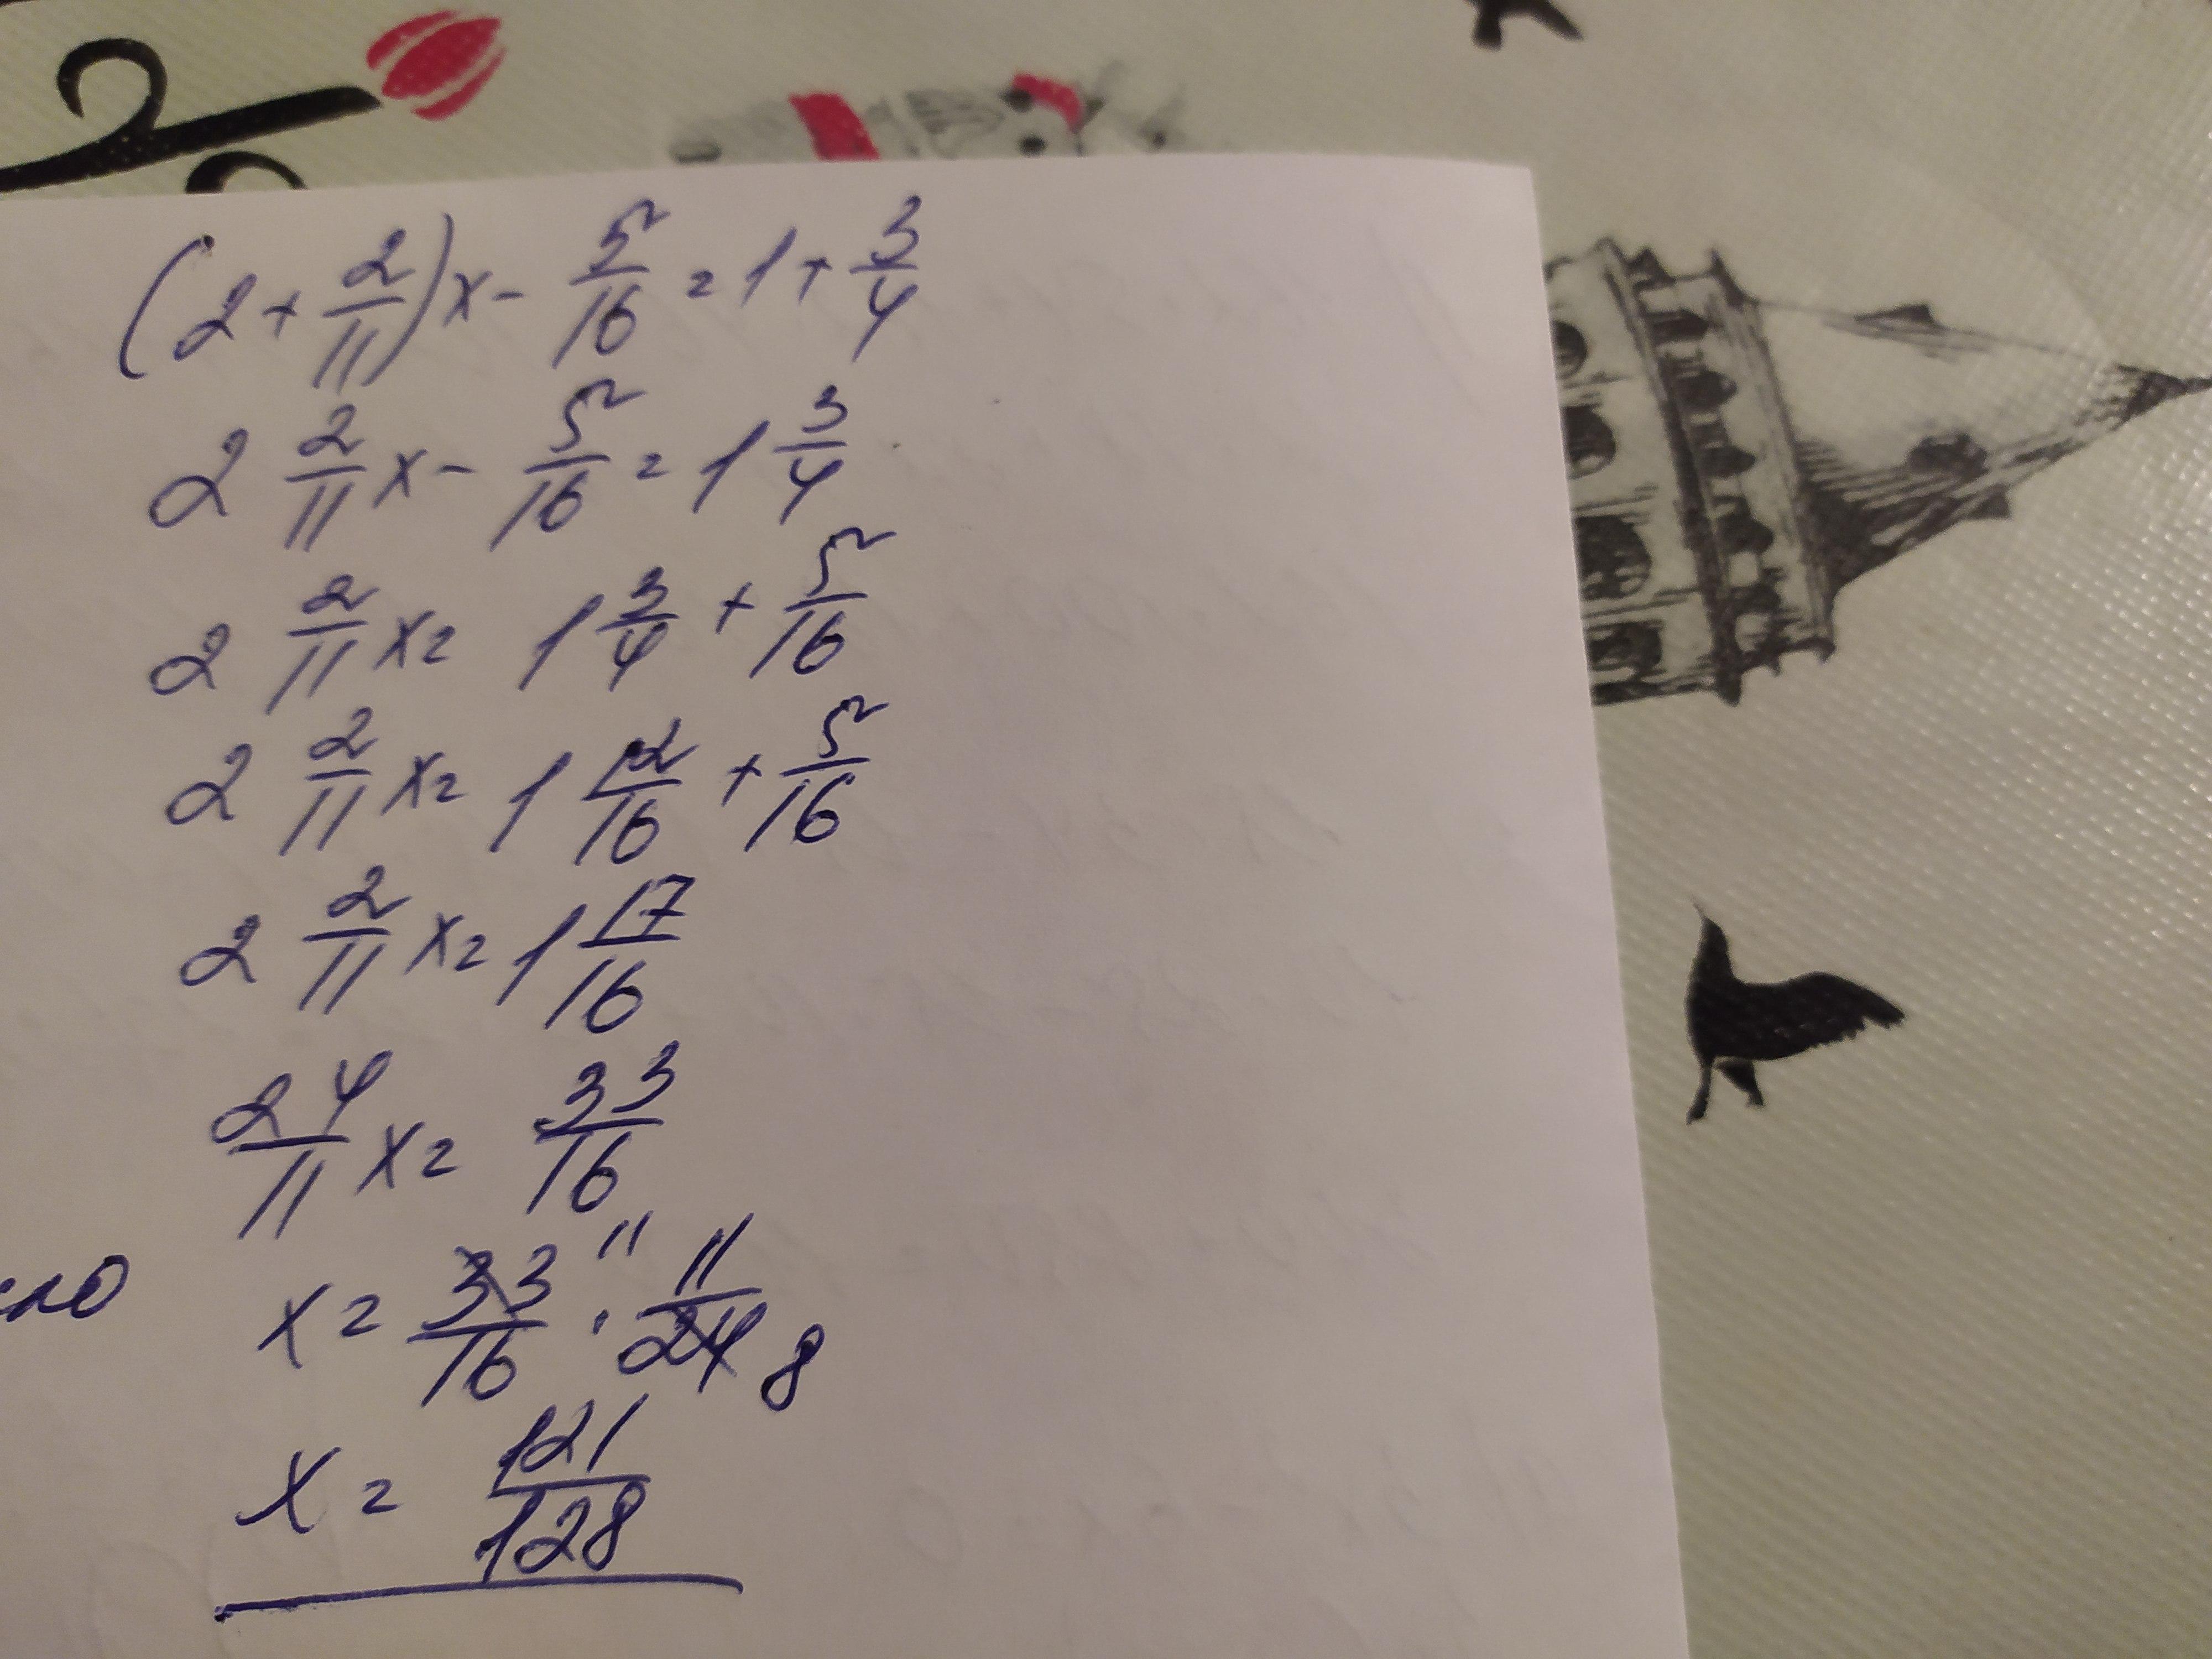 (2 + 2/11) x - 5/16 = 1 + 3/4
2 2/11 x - 5/16 = 1 3/4
2 2/11 x = 1 3/4 + 5/16
2 2/11 x = 1 12/16 + 5/16
2 2/11 x = 1 17/16
24/11 x = 33/16
x = 33/16 11 · 11/24 8
x = 121/128